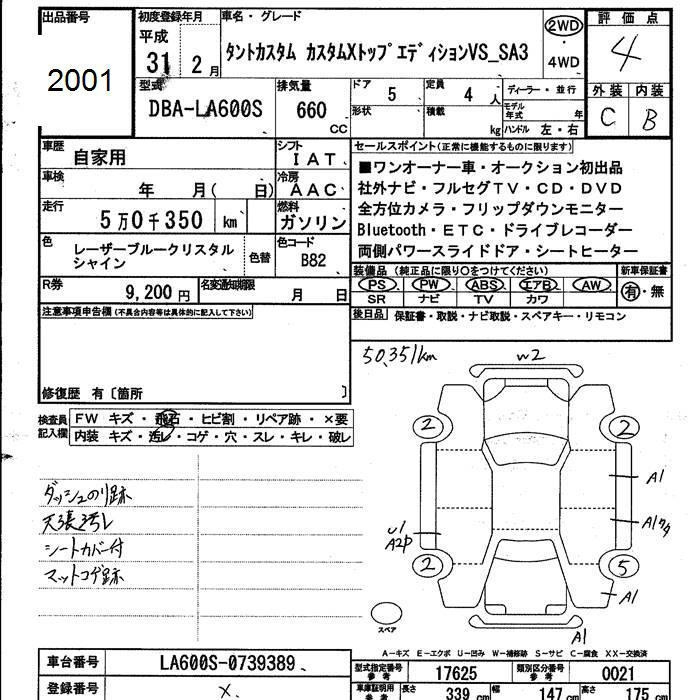 出品番号 初度登録年月 車名・グレード 評価点
2001 平成 31年 2月 タントカスタム カスタムXトップエディションVS_SA3 2WD・4WD 4
型式 排気量 ドア 5 定員 4人 ディーラー・並行 外装 内装
DBA-LA600S 660 CC 形状 積載 kg モデル年式 年 ハンドル 左・右 C B
車歴 自家用 シフト IAT セールスポイント(正常に機能するものに限ります)
車検 年 月( 日) 冷房 AAC ■ワンオーナー車・オークション初出品
社外ナビ・フルセグTV・CD・DVD
走行 5万0千350 km 燃料 ガソリン 全方位カメラ・フリップダウンモニター
Bluetooth・ETC・ドライブレコーダー
色 レーザーブルークリスタルシャイン 色替 色コード B82 両側パワースライドドア・シートヒーター
装備品(純正品に限り○をつけてください) 新車保証書
PS PW ABS エアB AW 有・無
R券 9,200円 名変通知期限 月 日 SR ナビ TV カワ
注意事項申告欄(不具合内容等は具体的に記入して下さい) 後日品 保証書・取説・ナビ取説・スペアキー・リモコン
50,351km W2
修復歴 有〔箇所 〕
検査員記入欄 FW キズ・飛石・ヒビ割・リペア跡・×要
内装 キズ・汚レ・コゲ・穴・スレ・キレ・破レ
2 2
A1
ダッシュのり跡
天張汚レ
U1 A2P A1
シートカバー付
マットコゲ跡
2 5
A1
スペア
A1
A―キズ E―エクボ U―凹み W―補修跡 S―サビ C―腐食 XX―交換済
車台番号 LA600S-0739389 型式指定番号 参考 17625 類別区分番号 参考 0021
登録番号 × 車庫証明用 参考 長さ 339 cm 幅 147 cm 高さ 175 cm